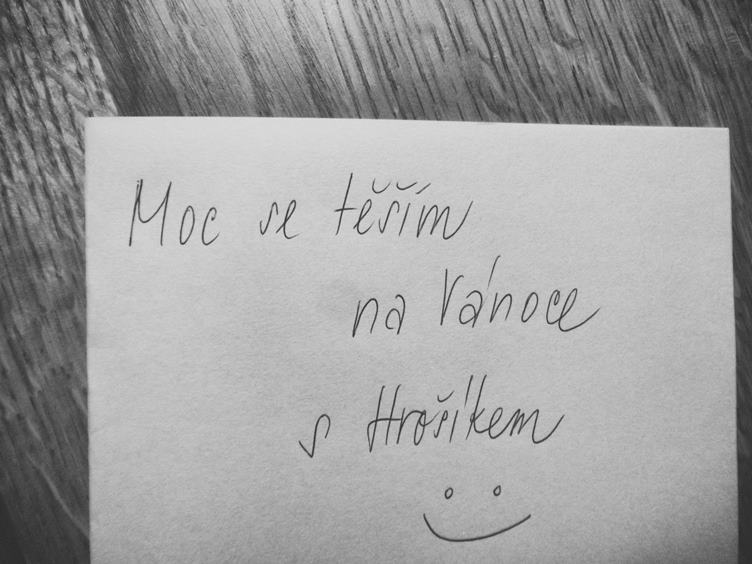 Moc se těším
na Vánoce
s Hrošíkem